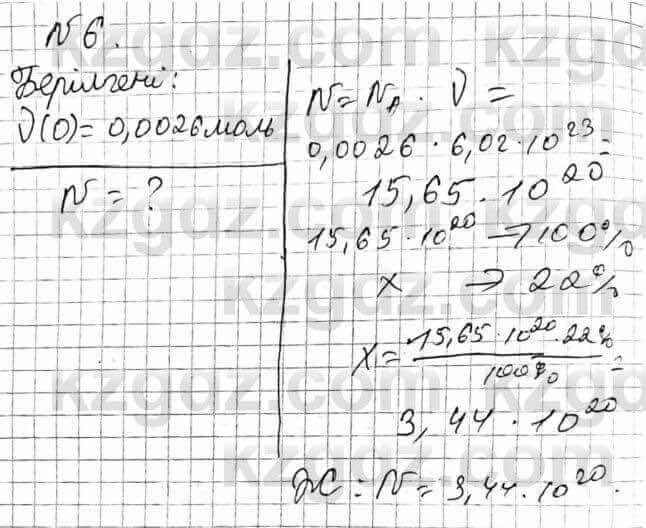 №6.
Берілгені:
ν(O) = 0,0026 моль
N = ?
N = N_A · ν =
0,0026 · 6,02 · 10²³ =
15,65 · 10²⁰
15,65 · 10²⁰ → 100%
x → 22%
x = 15,65 · 10²⁰ · 22% / 100% =
3,44 · 10²⁰
Ж: N = 3,44 · 10²⁰.
kzgdz.com